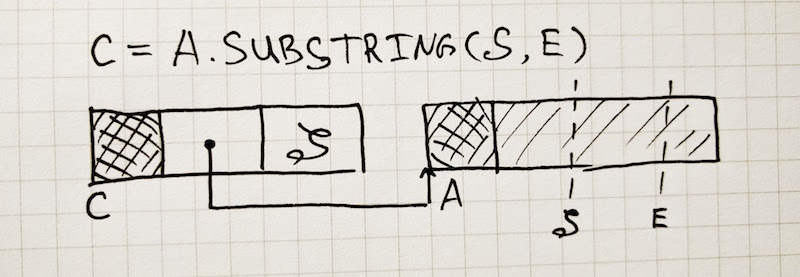 C = A.SUBSTRING(S, E)
S
C
A
S
E